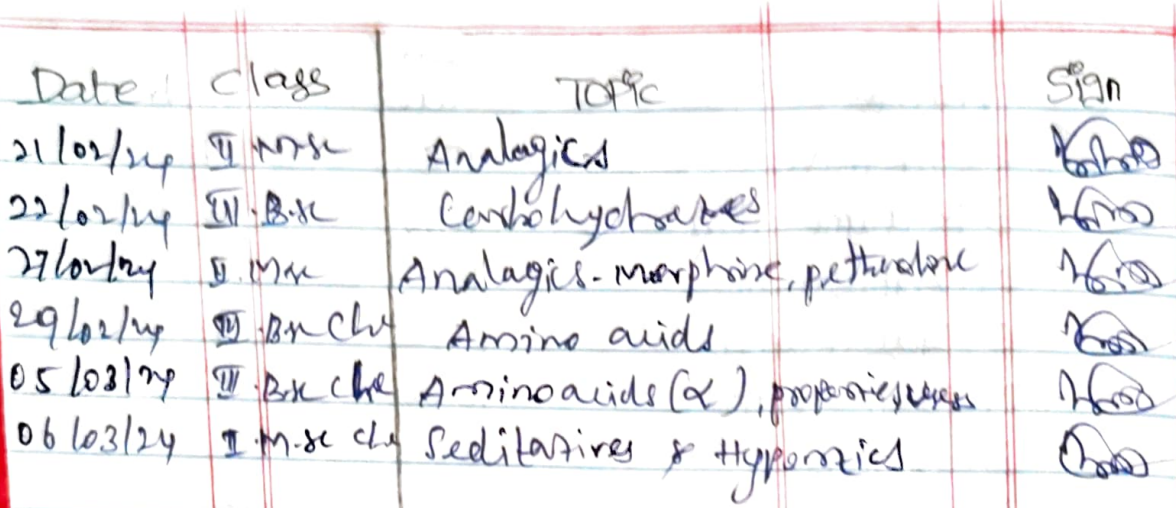 Date Class Topic Sign
21/02/24 II M.sc Analagics
22/02/24 III. B.sc Carbohydrates
27/02/24 II. Msc Analagics - morphine, pethidine
29/02/24 III. Bsc Che Amino acids
05/03/24 III. Bsc Che Aminoacids (α), properties, uses
06/03/24 II. M.sc che Seditatives & Hypnotics